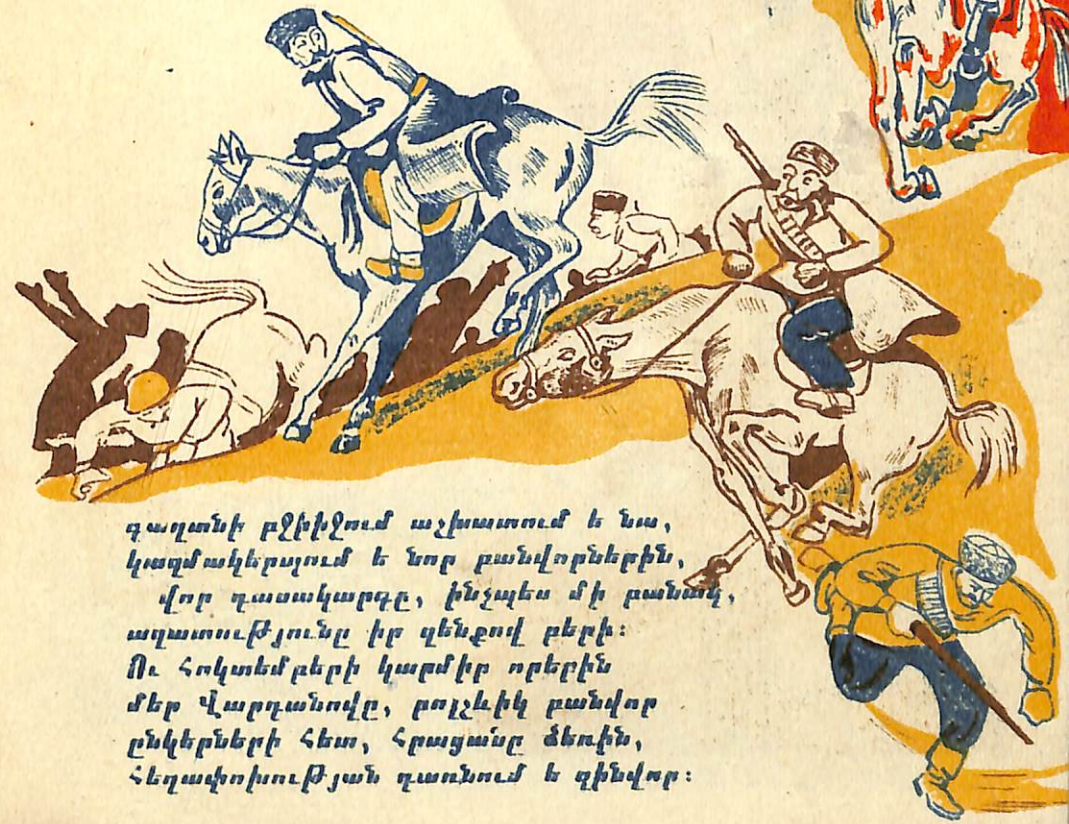 գաղտնի բջիջիջում աշխատում ե նա,
կազմակերպում ե նոր բանվորներին,
վոր դասակարգը, ինչպես մի բանակ,
ազատությունը իր զենքով բերի։
Ու Հոկտեմբերի կարմիր որերին
մեր Վարդանովը, բոլշևիկ բանվոր
ընկերների հետ, հրացանը ձեռին,
Հեղափոխության դառնում ե զինվոր։